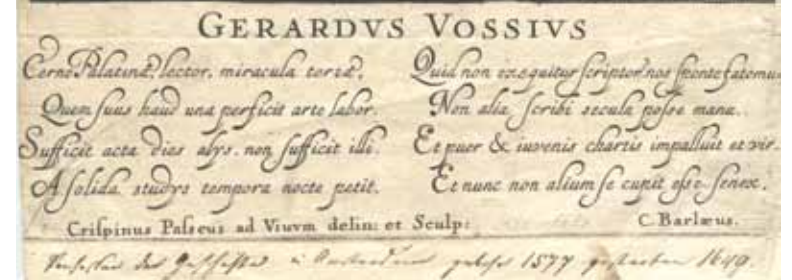 GERARDVS VOSSIVS
Cerne Palatinæ, lector, miracula terræ,
Quem suus haud una perficit arte labor.
Sufficit acta dies alys. non sufficit illi.
A solida studys tempora nocte petit.
Quid non exequitur scriptor? nos sponte fatemur
Non alia scribi secula posse manu.
Et puer & iuvenis chartis impalluit et vir.
Et nunc non alium se cupit esse senex.
Crispinus Passeus ad Viuvm delin: et Sculp:
C. Barlæus.
der in 1577 gestorben 1649.